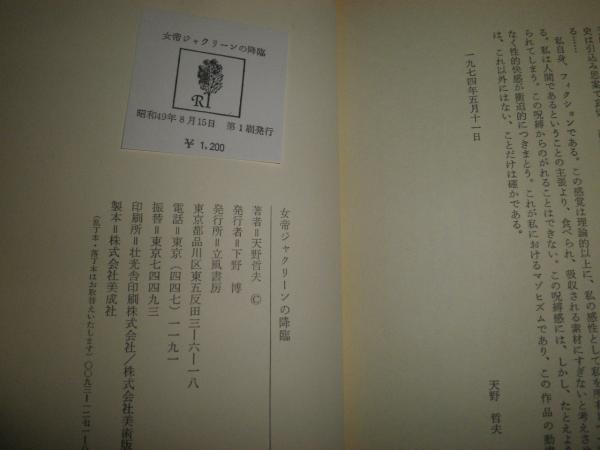 史は引込み思案で
る……
私自身、フィクションである。この感覚は理論的以上に、私の感性として私を所
る。私は人間であるということの主張より、食べられ、吸収される素材にすぎないと考えさせ
られてしまう。この呪縛からのがれることはできない。この呪縛感には、しかし、たとえよう
なく性的快感が衝迫的につきまとう。これが私におけるマゾヒズムであり、この作品の動
は、これ以外にはない、ことだけは確かである。
一九七四年五月十一日
天野 哲夫
女帝ジャクリーンの降臨
R
昭和49年8月15日 第1刷発行
¥ 1,200
女帝ジャクリーンの降臨
著者=天野哲夫 ©
発行者=下野 博
発行所=立風書房
東京都品川区東五反田三ー六ー一八
電話=東京(四四七)一一九一
振替=東京七四四九三
印刷所=壮光舎印刷株式会社/株式会社美術版
製本=株式会社美成社
(乱丁本・落丁本はお取替えいたします)〇〇九三ー一二七一ー八